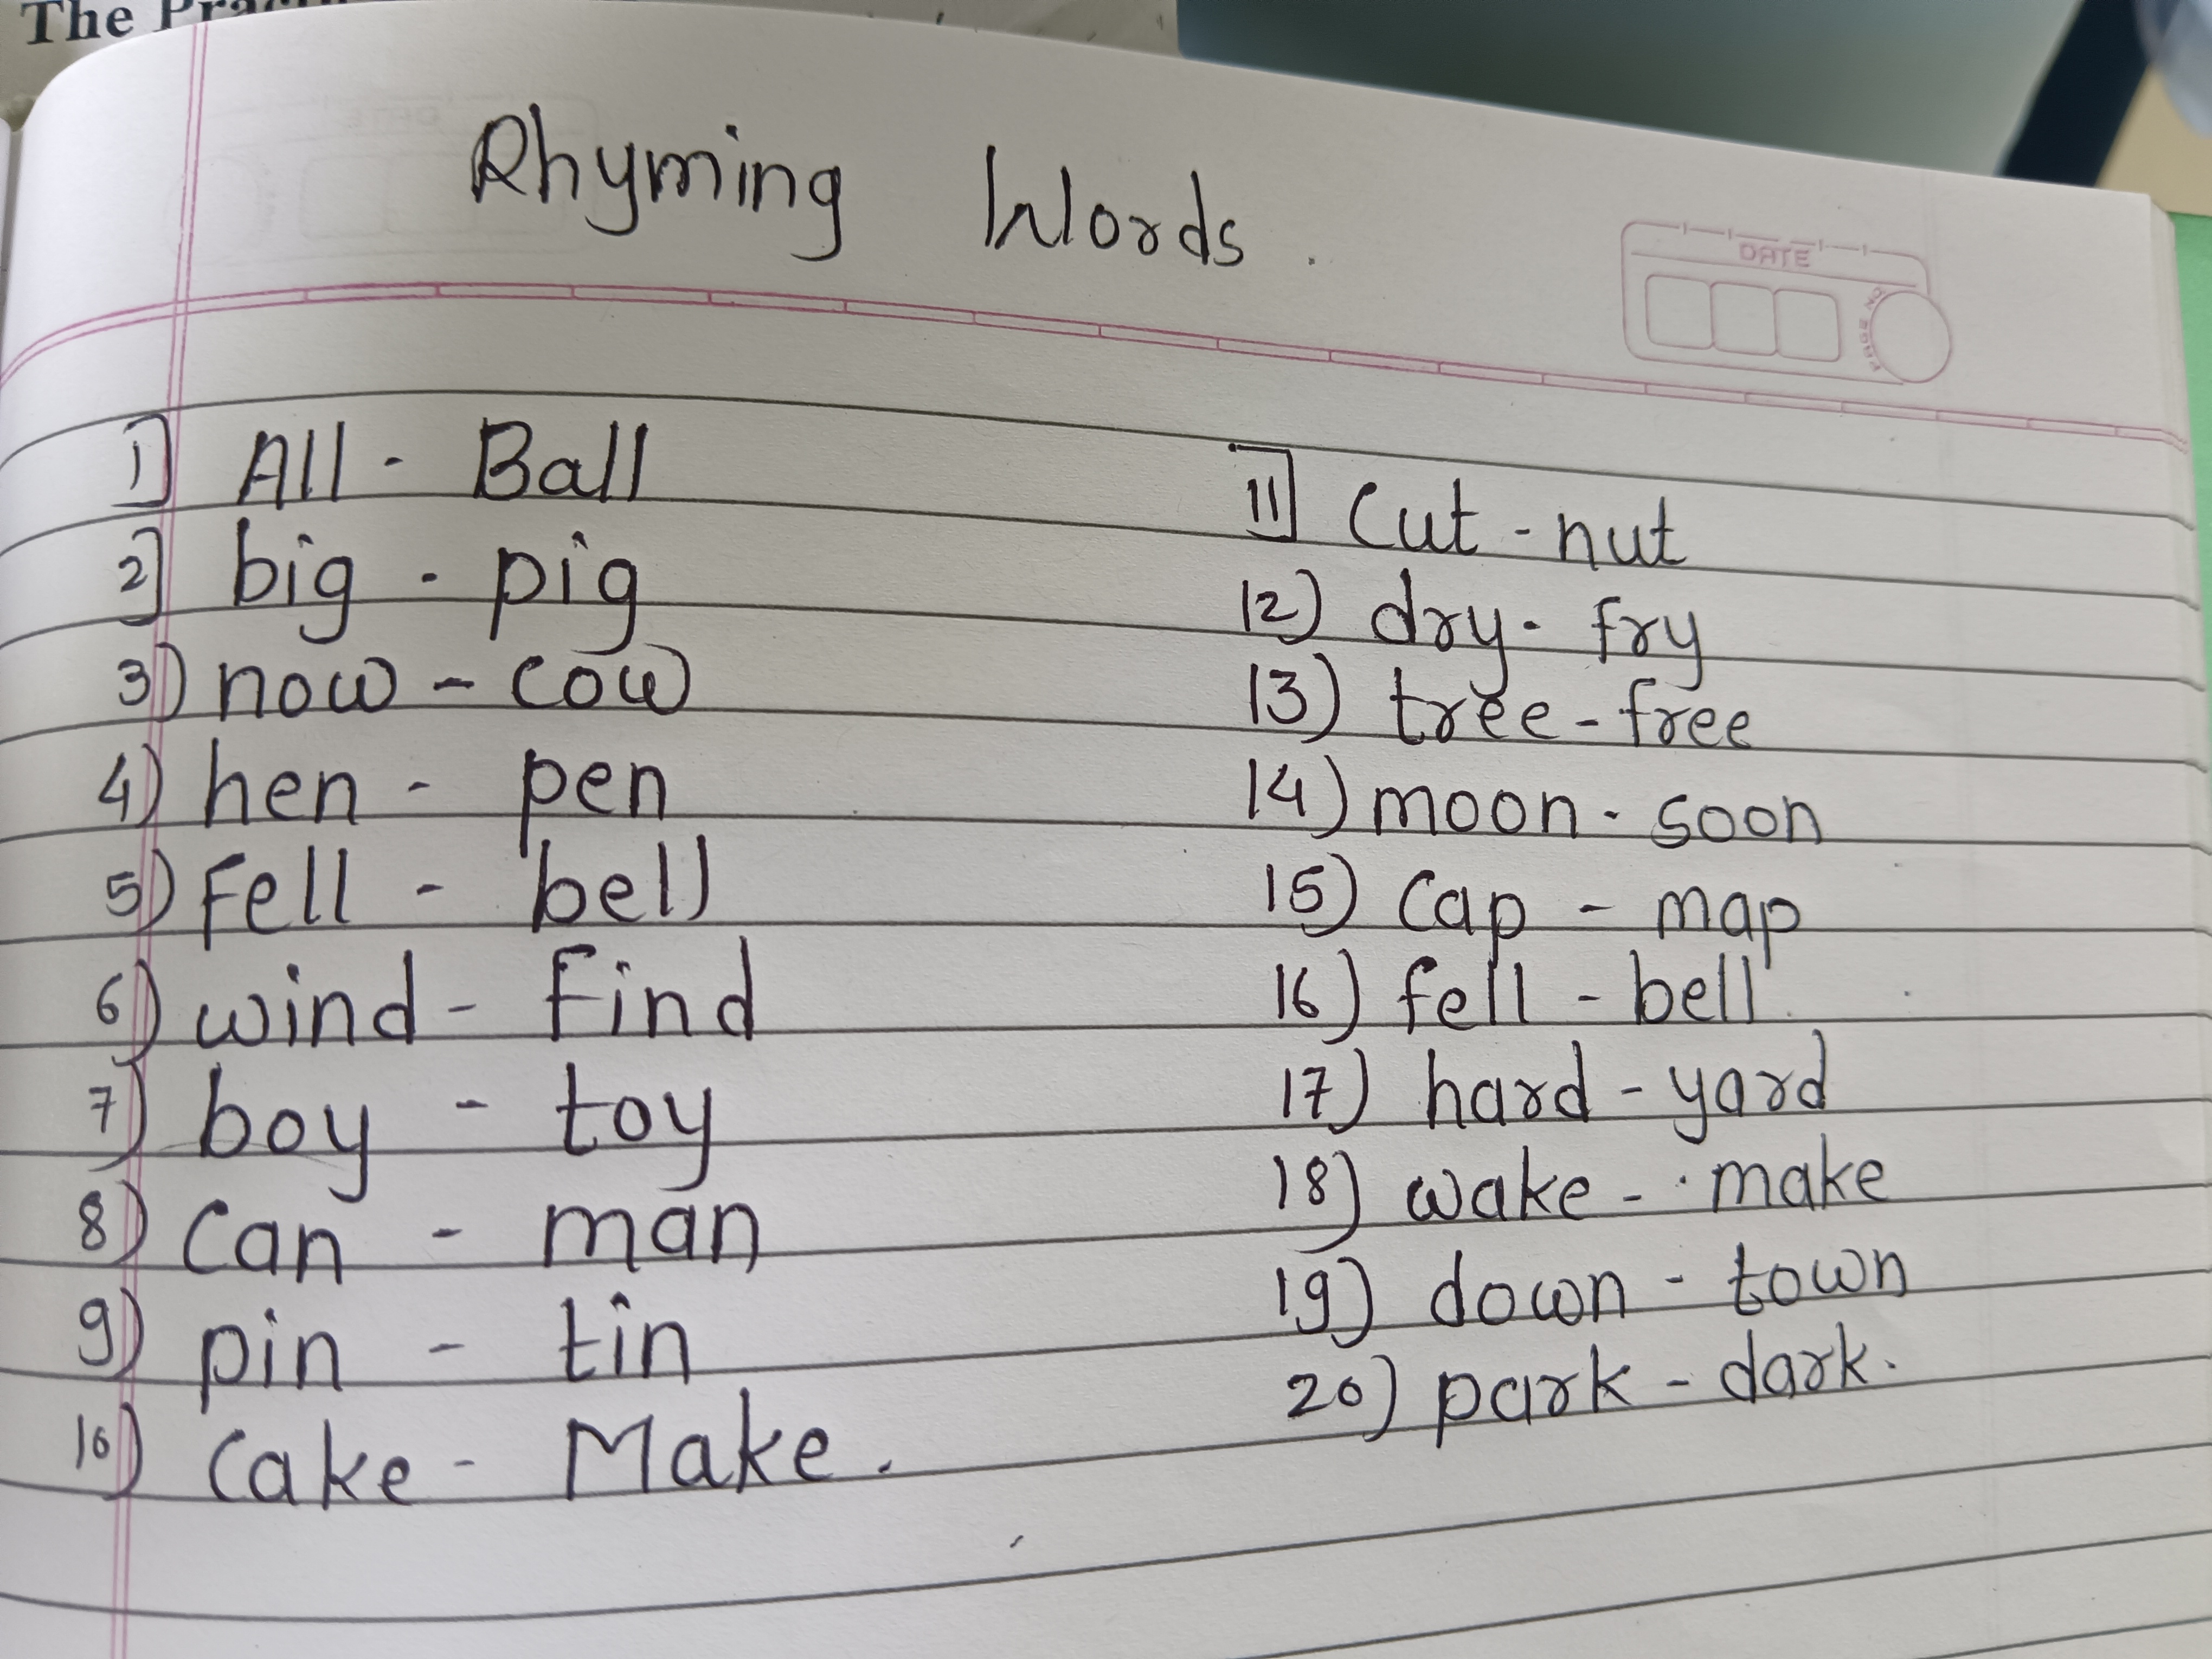 The
Rhyming Words.
DATE
1] All - Ball
2] big - pig
3) now - cow
4) hen - pen
5) Fell - bell
6) wind - Find
7) boy - toy
8) Can - man
9) pin - tin
10) Cake - Make.
11] Cut - nut
12) dry - fry
13) tree - free
14) moon - soon
15) Cap - map
16) fell - bell.
17) hard - yard
18) wake - make
19) down - town
20) park - dark.